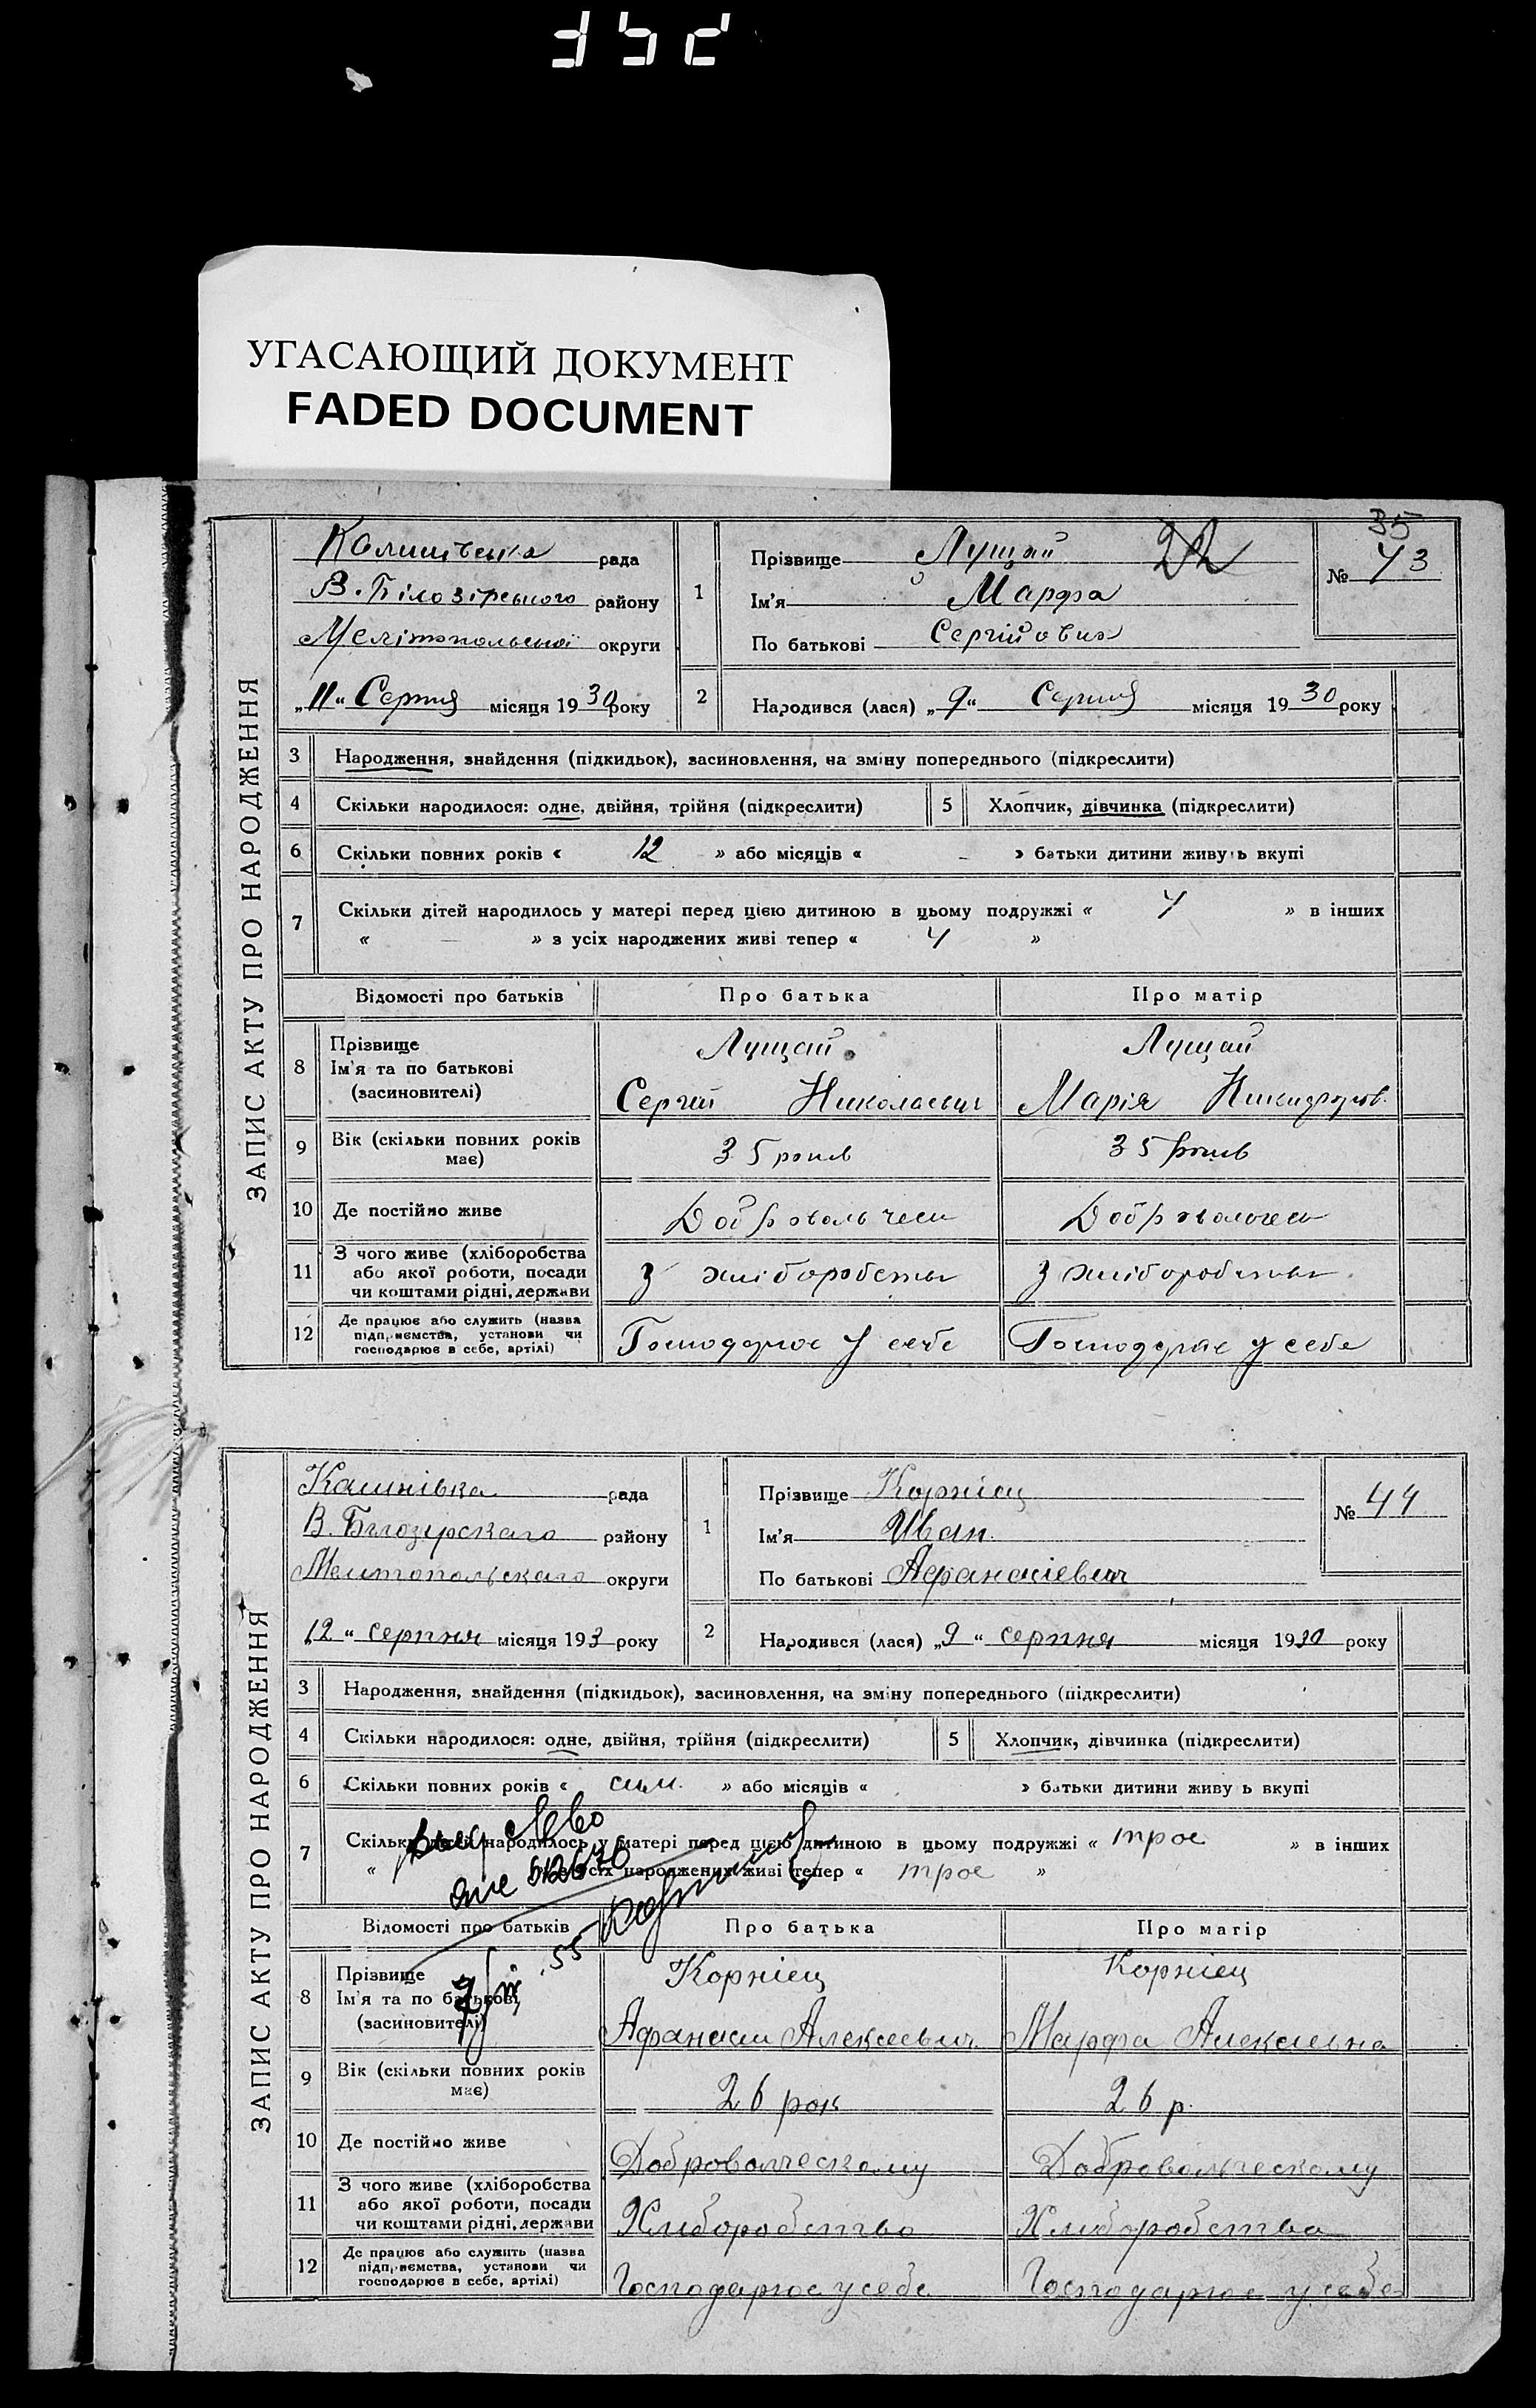 УГАСАЮЩИЙ ДОКУМЕНТ
FADED DOCUMENT
35
ЗАПИС АКТУ ПРО НАРОДЖЕННЯ
рада
В. Білозірського району
Мелітопольської округи
„11“ Серпня місяця 1930 року
1
Прізвище Лущай 22
Ім'я Марфа
По батькові Сергійовна
№ 43
2
Народився (лася) „9“ Серпня місяця 1930 року
3 Народження, знайдення (підкидьок), засиновлення, на зміну попереднього (підкреслити)
4 Скільки народилося: одне, двійня, трійня (підкреслити) 5 Хлопчик, дівчинка (підкреслити)
6 Скільки повних років « 12 » або місяців « – » батьки дитини живуть вкупі
7 Скільки дітей народилось у матері перед цією дитиною в цьому подружжі « 4 » в інших
« — » з усіх народжених живі тепер « 4 »
Відомості про батьків Про батька Про матір
8 Прізвище Ім'я та по батькові (засиновителі)
Лущай Лущай
Сергій Николаевич Марія
9 Вік (скільки повних років має) 35 років 35 років
10 Де постійно живе Добровольческ Добровольческ
11 З чого живе (хліборобства або якої роботи, посади чи коштами рідні, держави З хліборобства З хліборобства
12 Де працює або служить (назва підприємства, установи чи господарює в себе, артілі) Господарює у себе Господарює у себе
ЗАПИС АКТУ ПРО НАРОДЖЕННЯ
рада
В. Білозірскаго району
Мелитопольскаго округи
„12“ серпня місяця 193 року
1
Прізвище Корніец
Ім'я Иван
По батькові Афанасіевич
№ 44
2
Народився (лася) „9“ серпня місяця 1930 року
3 Народження, знайдення (підкидьок), засиновлення, на зміну попереднього (підкреслити)
4 Скільки народилося: одне, двійня, трійня (підкреслити) 5 Хлопчик, дівчинка (підкреслити)
6 Скільки повних років « сим » або місяців « » батьки дитини живуть вкупі
7 Скільки дітей народилось у матері перед цією дитиною в цьому подружжі « трое » в інших
« » з усіх народжених живі тепер « трое »
Відомості про батьків Про батька Про матір
8 Прізвище Ім'я та по батькові (засиновителі)
Корніец Корніец
Афанасии Алексеевич Марфа Алексиевна
9 Вік (скільки повних років має) 26 рок 26 р.
10 Де постійно живе Добровольческому Добровольческому
11 З чого живе (хліборобства або якої роботи, посади чи коштами рідні, держави Хлиборобство Хлиборобства
12 Де працює або служить (назва підприємства, установи чи господарює в себе, артілі) Господарюе у себе Господарюе у себе